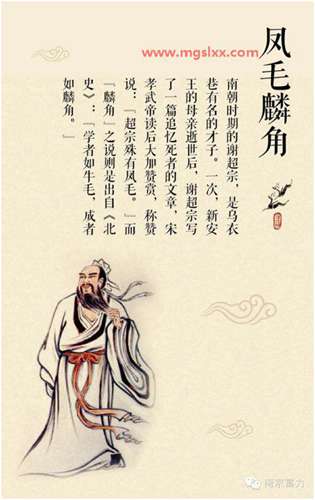 www.mgslxx.com
凤毛麟角
南朝时期的谢超宗，是乌衣
巷有名的才子。一次，新安
王的母亲逝世后，谢超宗写
了一篇追忆死者的文章，宋
孝武帝读后大加赞赏，称赞
说：『超宗殊有凤毛。』而
『麟角』之说则是出自《北
史》：『学者如牛毛，成者
如麟角。』